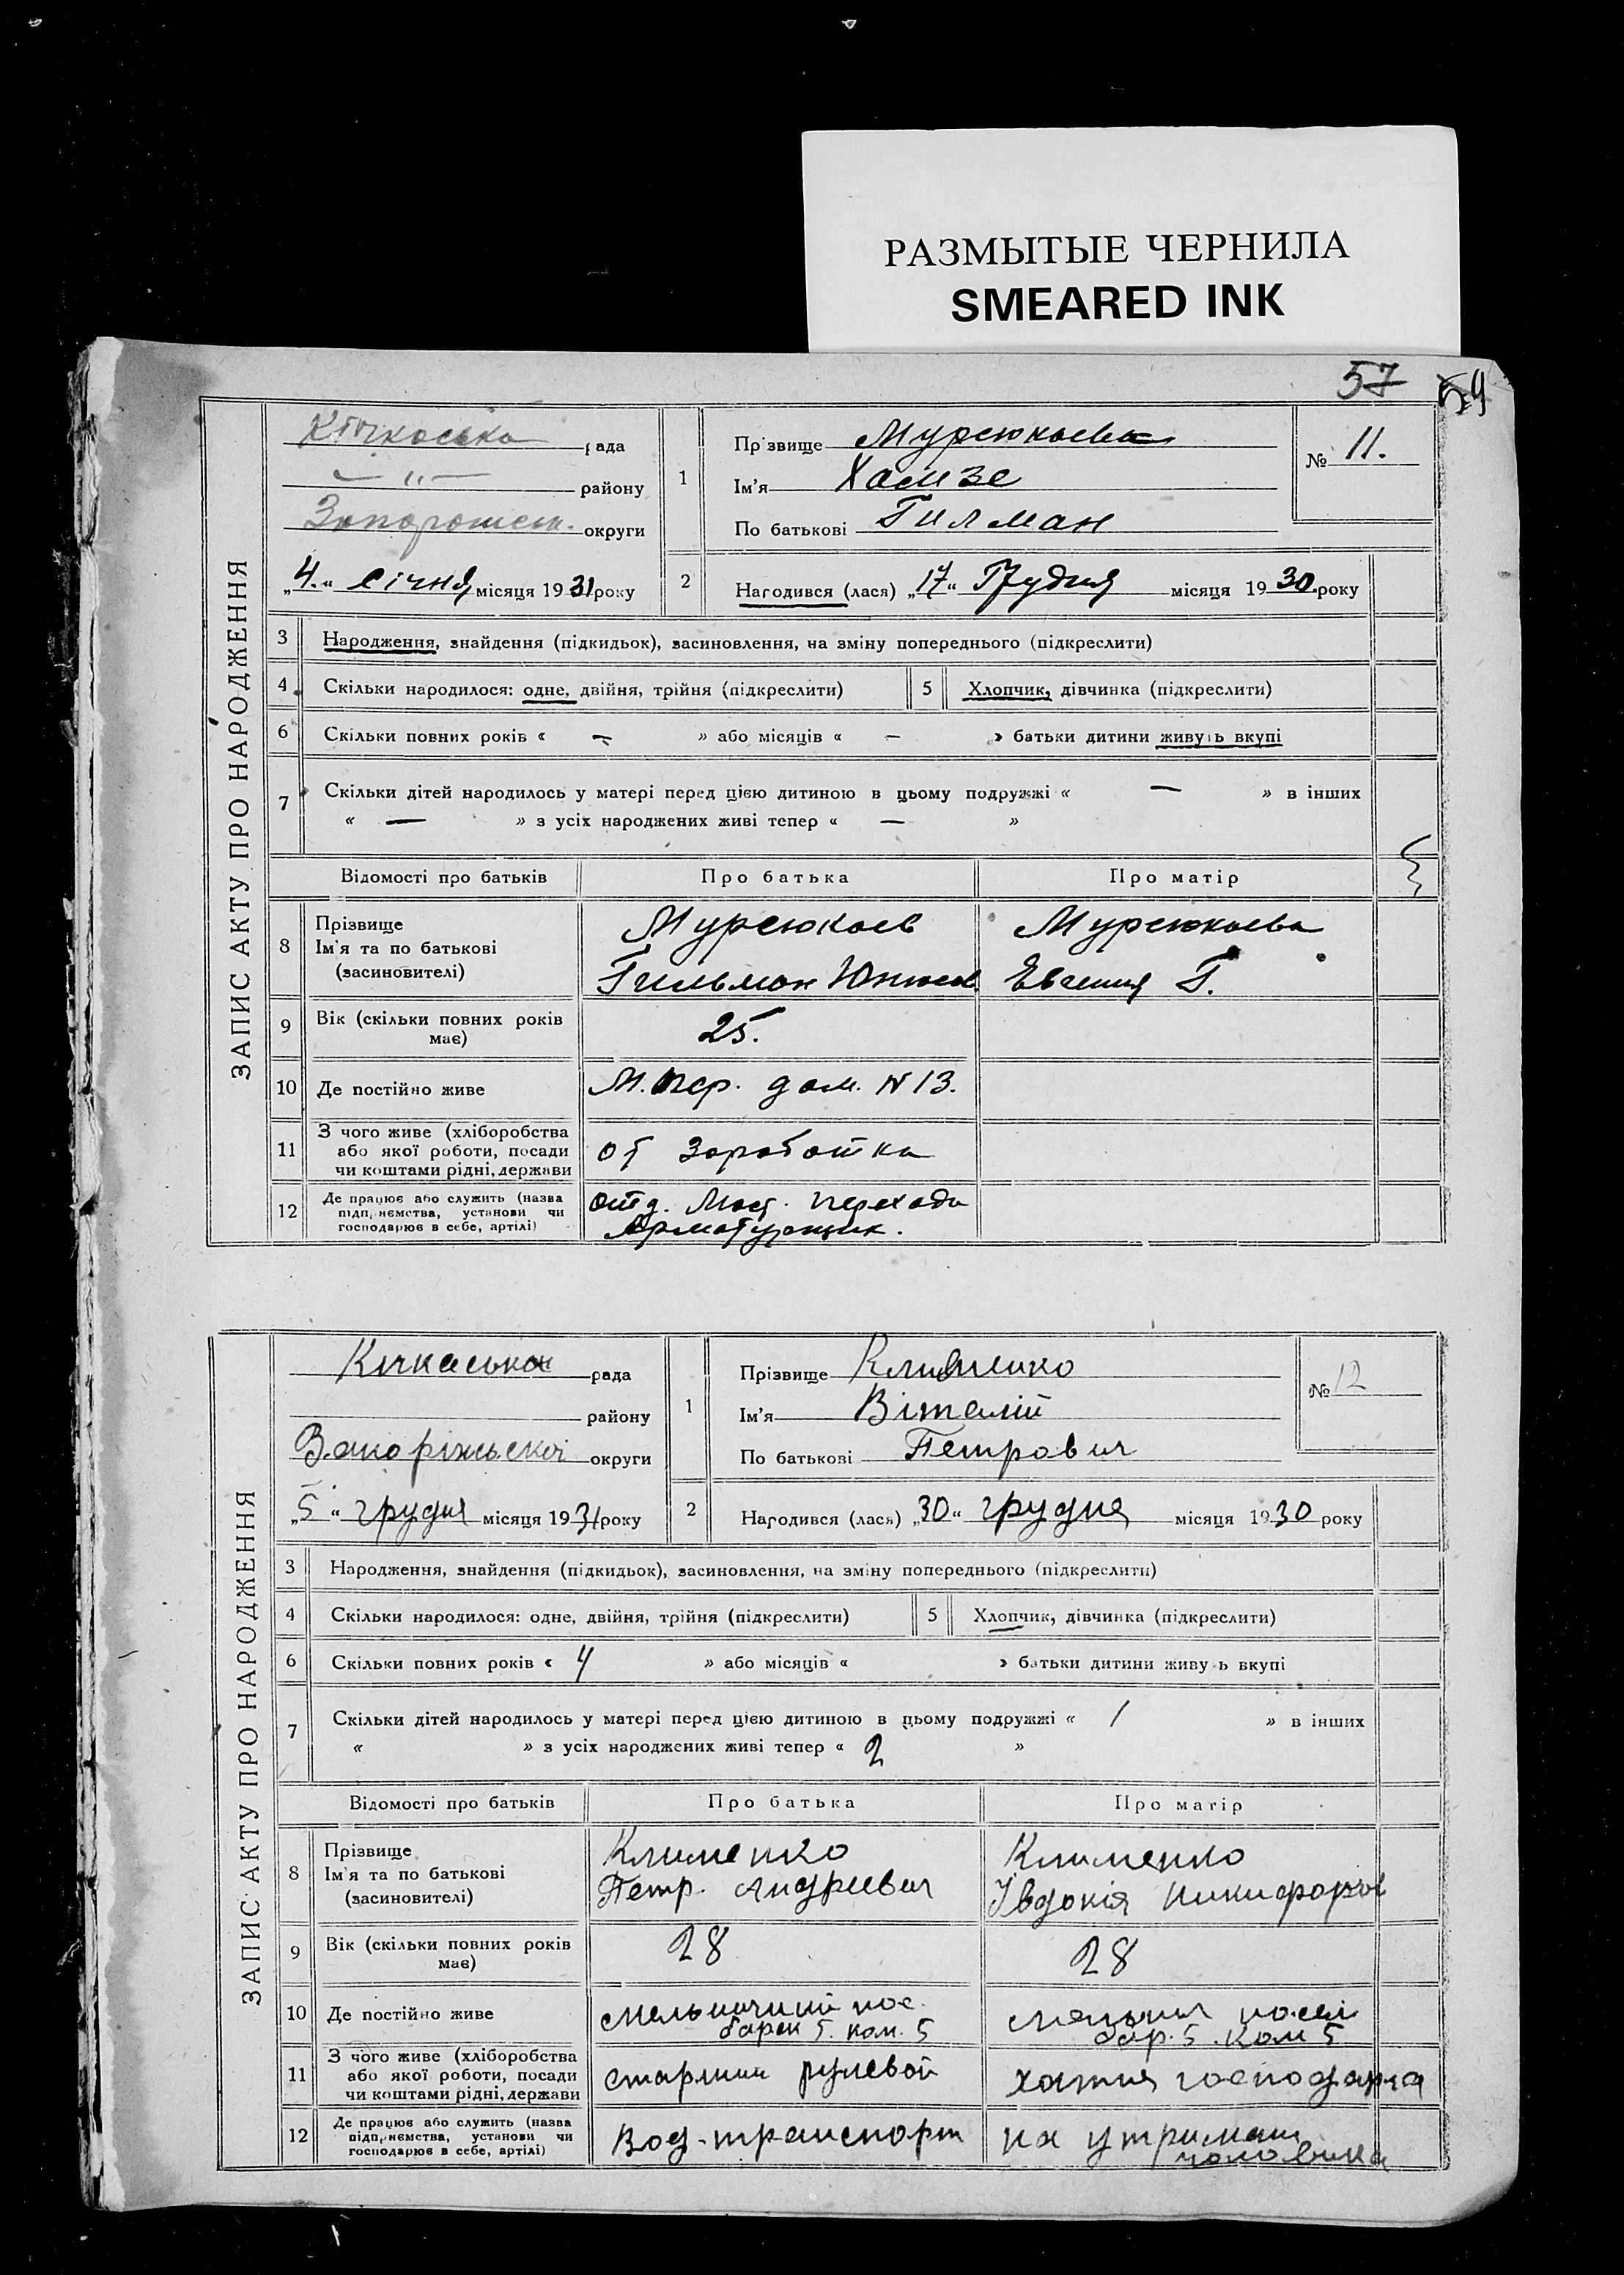 РАЗМЫТЫЕ ЧЕРНИЛА
SMEARED INK
57 54
ЗАПИС АКТУ ПРО НАРОДЖЕННЯ
Кічкаська рада
— " — району
Запорожск. округи
„4.“ січня місяця 1931 року
1 Прізвище Мурсюкаева
Ім'я Хамзе
По батькові Гилман
№ 11.
2 Народився (лася) „17“ Грудня місяця 1930 року
3 Народження, знайдення (підкидьок), засиновлення, на зміну попереднього (підкреслити)
4 Скільки народилося: одне, двійня, трійня (підкреслити) 5 Хлопчик, дівчинка (підкреслити)
6 Скільки повних років « — » або місяців « — » батьки дитини живуть вкупі
7 Скільки дітей народилось у матері перед цією дитиною в цьому подружжі « — » в інших
« — » з усіх народжених живі тепер « — »
Відомості про батьків Про батька Про матір
8 Прізвище Ім'я та по батькові (засиновителі) Мурсюкаев Мурсюкаева
Гильман Г.
9 Вік (скільки повних років має) 25.
10 Де постійно живе М. пер. дом. N 13.
11 З чого живе (хліборобства або якої роботи, посади чи коштами рідні, держави от заработка
12 Де працює або служить (назва підприємства, установи чи господарює в себе, артілі) отд. Мост. перехода
Арматурщик.
ЗАПИС АКТУ ПРО НАРОДЖЕННЯ
Кічкаська рада
району
Запоріжської округи
„5“ грудня місяця 1931 року
1 Прізвище Клименко
Ім'я Віталій
По батькові Петрович
№ 12
2 Народився (лася) „30“ грудня місяця 1930 року
3 Народження, знайдення (підкидьок), засиновлення, на зміну попереднього (підкреслити)
4 Скільки народилося: одне, двійня, трійня (підкреслити) 5 Хлопчик, дівчинка (підкреслити)
6 Скільки повних років « 4 » або місяців « » батьки дитини живуть вкупі
7 Скільки дітей народилось у матері перед цією дитиною в цьому подружжі « 1 » в інших
« » з усіх народжених живі тепер « 2 »
Відомості про батьків Про батька Про матір
8 Прізвище Ім'я та по батькові (засиновителі) Клименко Клименко
Петр. Андреевич Івдокія Никифоров
9 Вік (скільки повних років має) 28 28
10 Де постійно живе пос. посел
барак 5. ком. 5 бар. 5. Ком 5
11 З чого живе (хліборобства або якої роботи, посади чи коштами рідні, держави старший рулевой хатня господарка
12 Де працює або служить (назва підприємства, установи чи господарює в себе, артілі) Вод-транспорт на утриман
чоловика